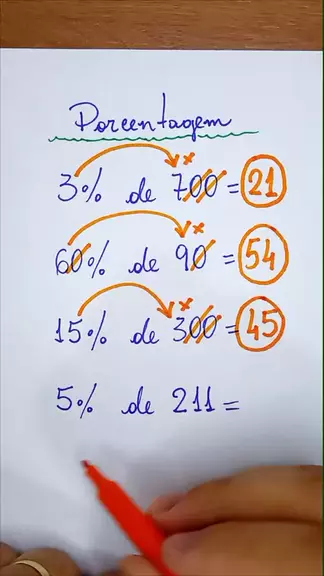 Porcentagem
3% de 700 = 21
60% de 90 = 54
15% de 300 = 45
5% de 211 =